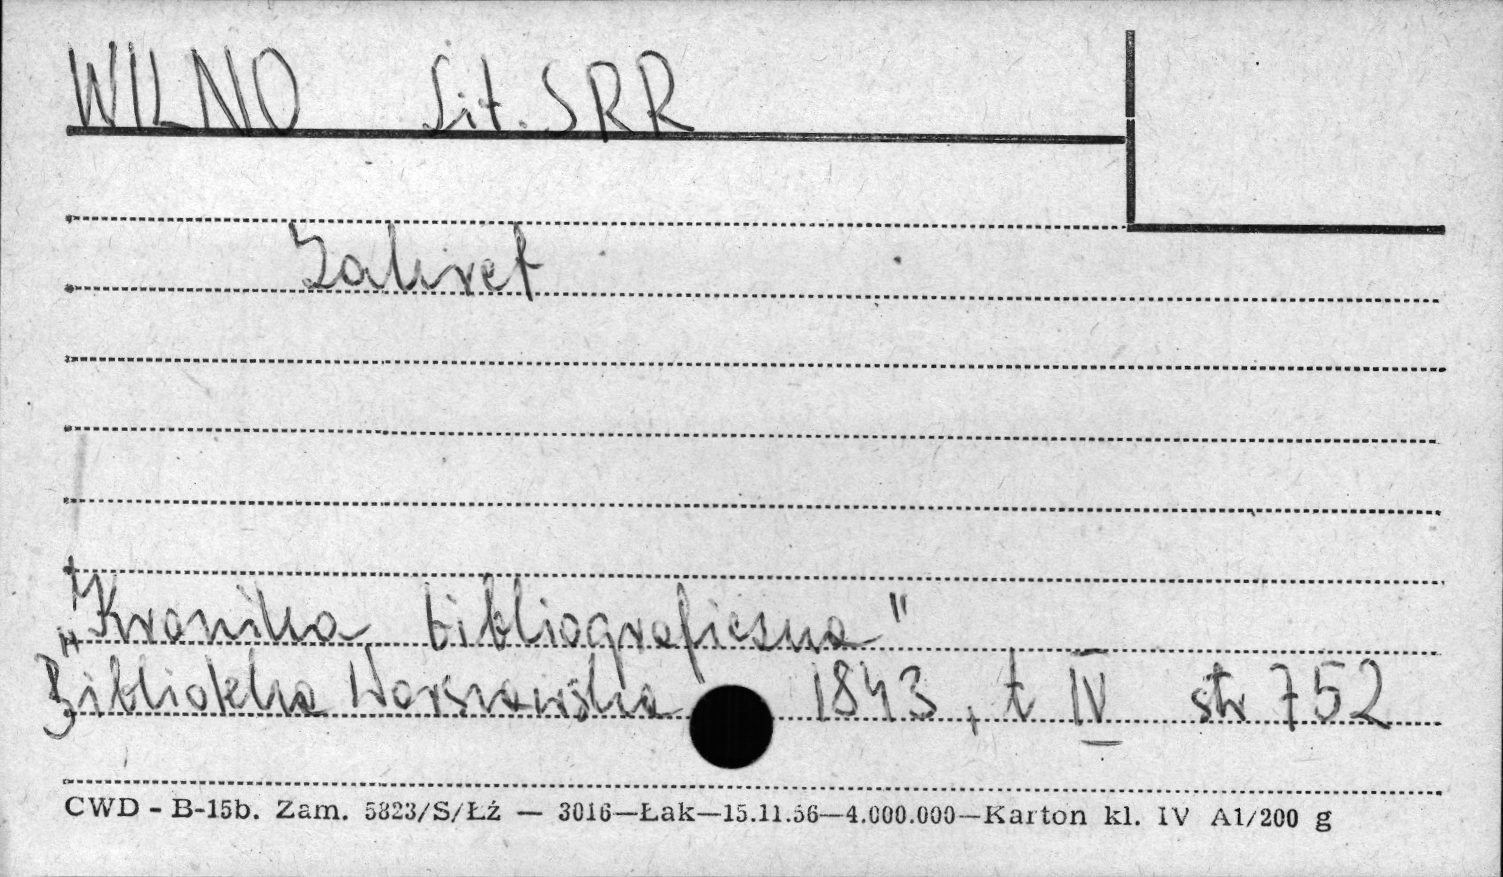 WILNO Lit. SRR
Zakret
"Kronika bibliograficzna"
Biblioteka Warszawska 1843, t IV str 752
CWD - B-15b. Zam. 5823/S/Łź — 3016—Łak—15.11.56—4.000.000—Karton kl. IV A1/200 g